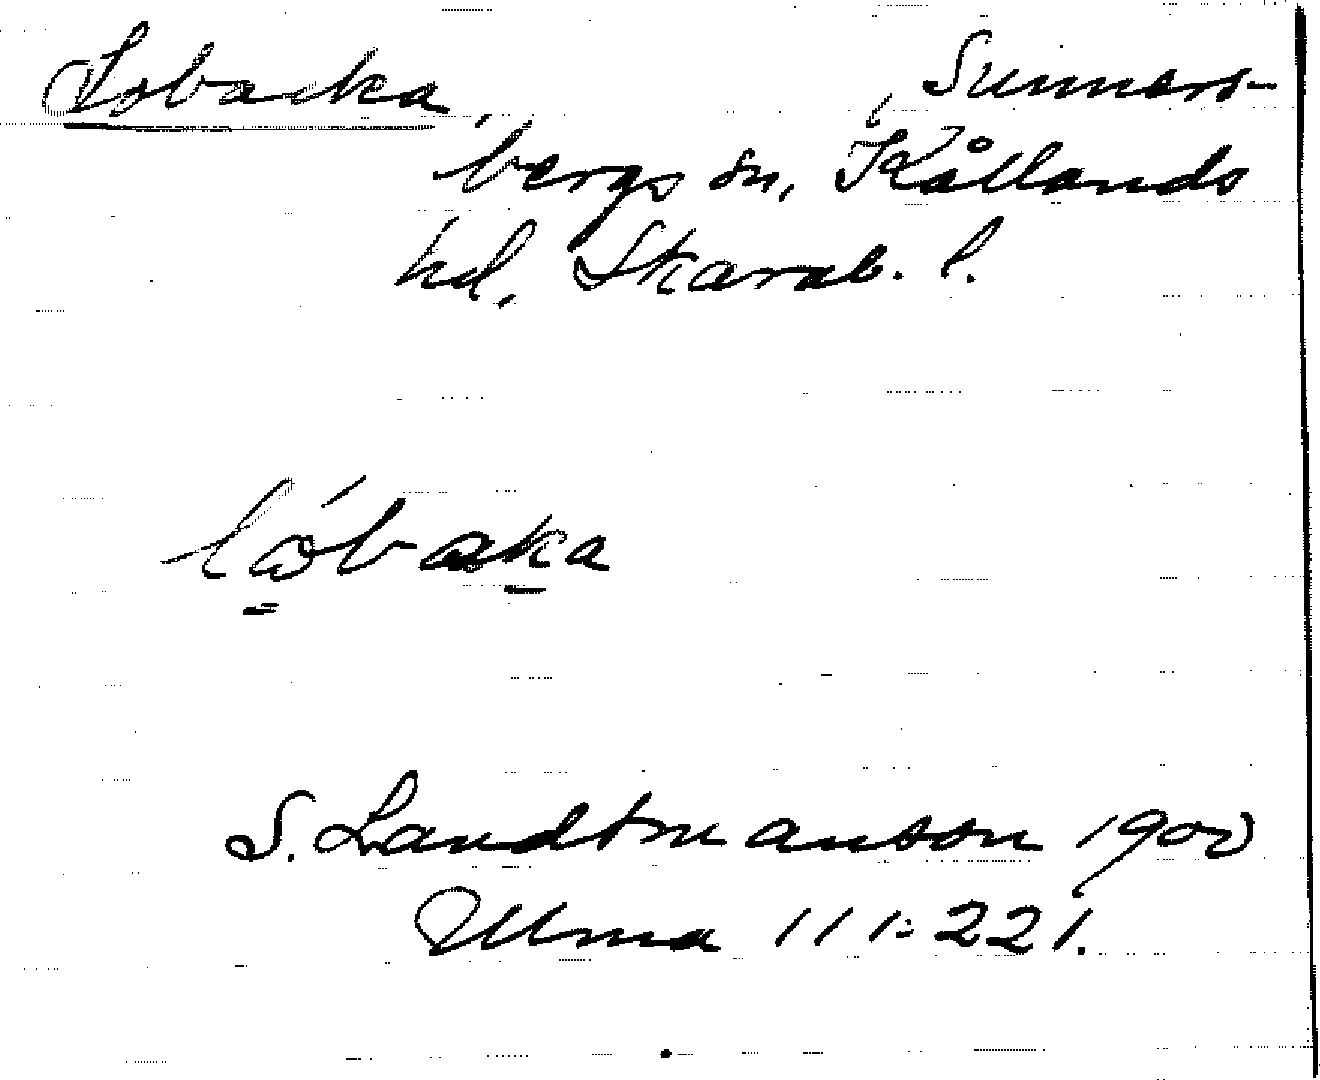 Lobacka, Sunners-
bergs sn, Kållands
hd, Skarab. l.
S. Landtmanson 1900
Ulma 111:221.